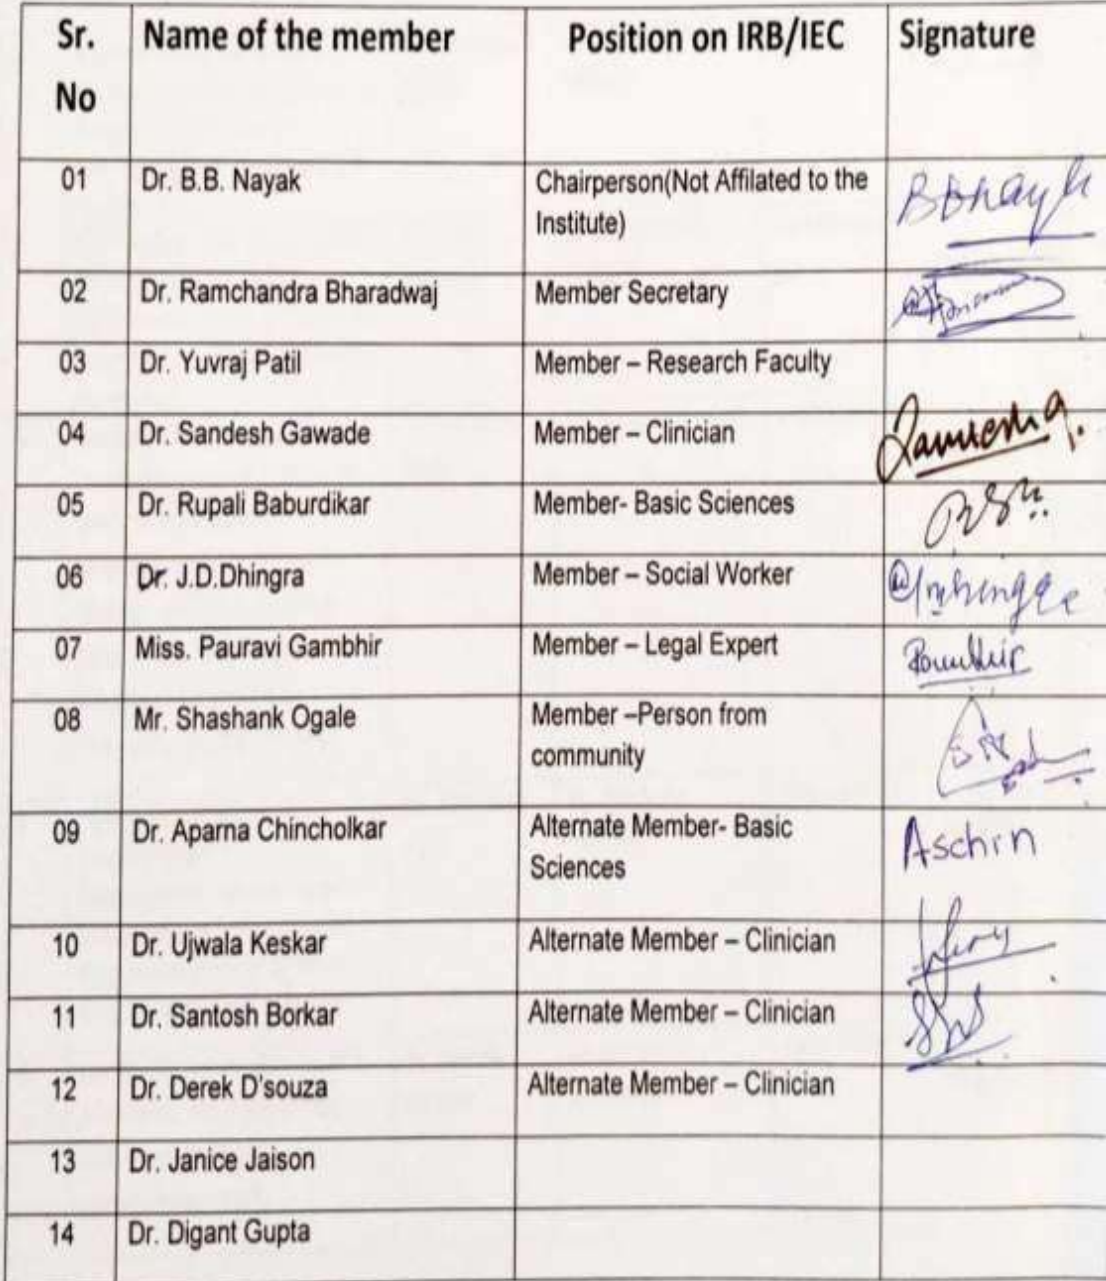 Sr. Name of the member Position on IRB/IEC Signature
No
01 Dr. B.B. Nayak Chairperson(Not Affilated to the
Institute)
BBnayak
02 Dr. Ramchandra Bharadwaj Member Secretary
03 Dr. Yuvraj Patil Member – Research Faculty
04 Dr. Sandesh Gawade Member – Clinician
05 Dr. Rupali Baburdikar Member- Basic Sciences
06 Dr. J.D.Dhingra Member – Social Worker
07 Miss. Pauravi Gambhir Member – Legal Expert
08 Mr. Shashank Ogale Member –Person from
community
09 Dr. Aparna Chincholkar Alternate Member- Basic
Sciences
Aschin
10 Dr. Ujwala Keskar Alternate Member – Clinician
11 Dr. Santosh Borkar Alternate Member – Clinician
12 Dr. Derek D'souza Alternate Member – Clinician
13 Dr. Janice Jaison
14 Dr. Digant Gupta